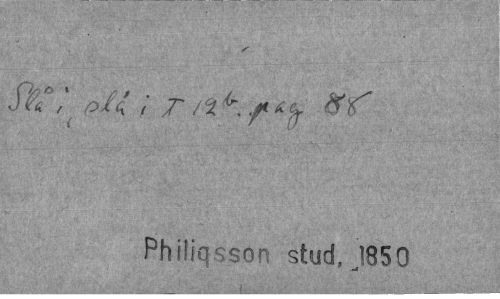 Slå i, slå i T 12b. pag 88
Philiqsson stud, 1850